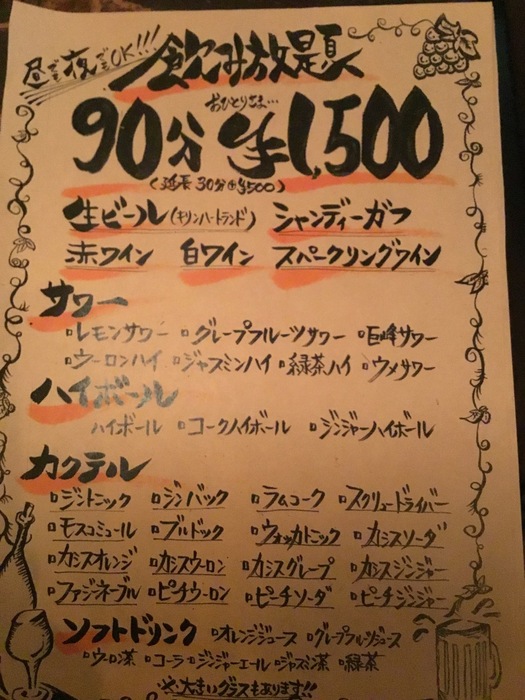 昼でも夜でもOK!!!
飲み放題
おひとりさま…
90分 ¥1,500
(延長 30分 ⊕¥500)
生ビール(キリンハートランド) シャンディーガフ
赤ワイン 白ワイン スパークリングワイン
サワー
▫レモンサワー ▫グレープフルーツサワー ▫巨峰サワー
▫ウーロンハイ ▫ジャスミンハイ ▫緑茶ハイ ▫ウメサワー
ハイボール
ハイボール ▫コークハイボール ▫ジンジャーハイボール
カクテル
▫ジントニック ▫ジンバック ▫ラムコーク ▫スクリュードライバー
▫モスコミュール ▫ブルドック ▫ウォッカトニック ▫カシスソーダ
▫カシスオレンジ ▫カシスウーロン ▫カシスグレープ ▫カシスジンジャー
▫ファジーネーブル ▫ピーチウーロン ▫ピーチソーダ ▫ピーチジンジャー
ソフトドリンク ▫オレンジジュース ▫グレープフルーツジュース
▫ウーロン茶 ▫コーラ ▫ジンジャーエール ▫ジャスミン茶 ▫緑茶
大きいグラスもあります!!